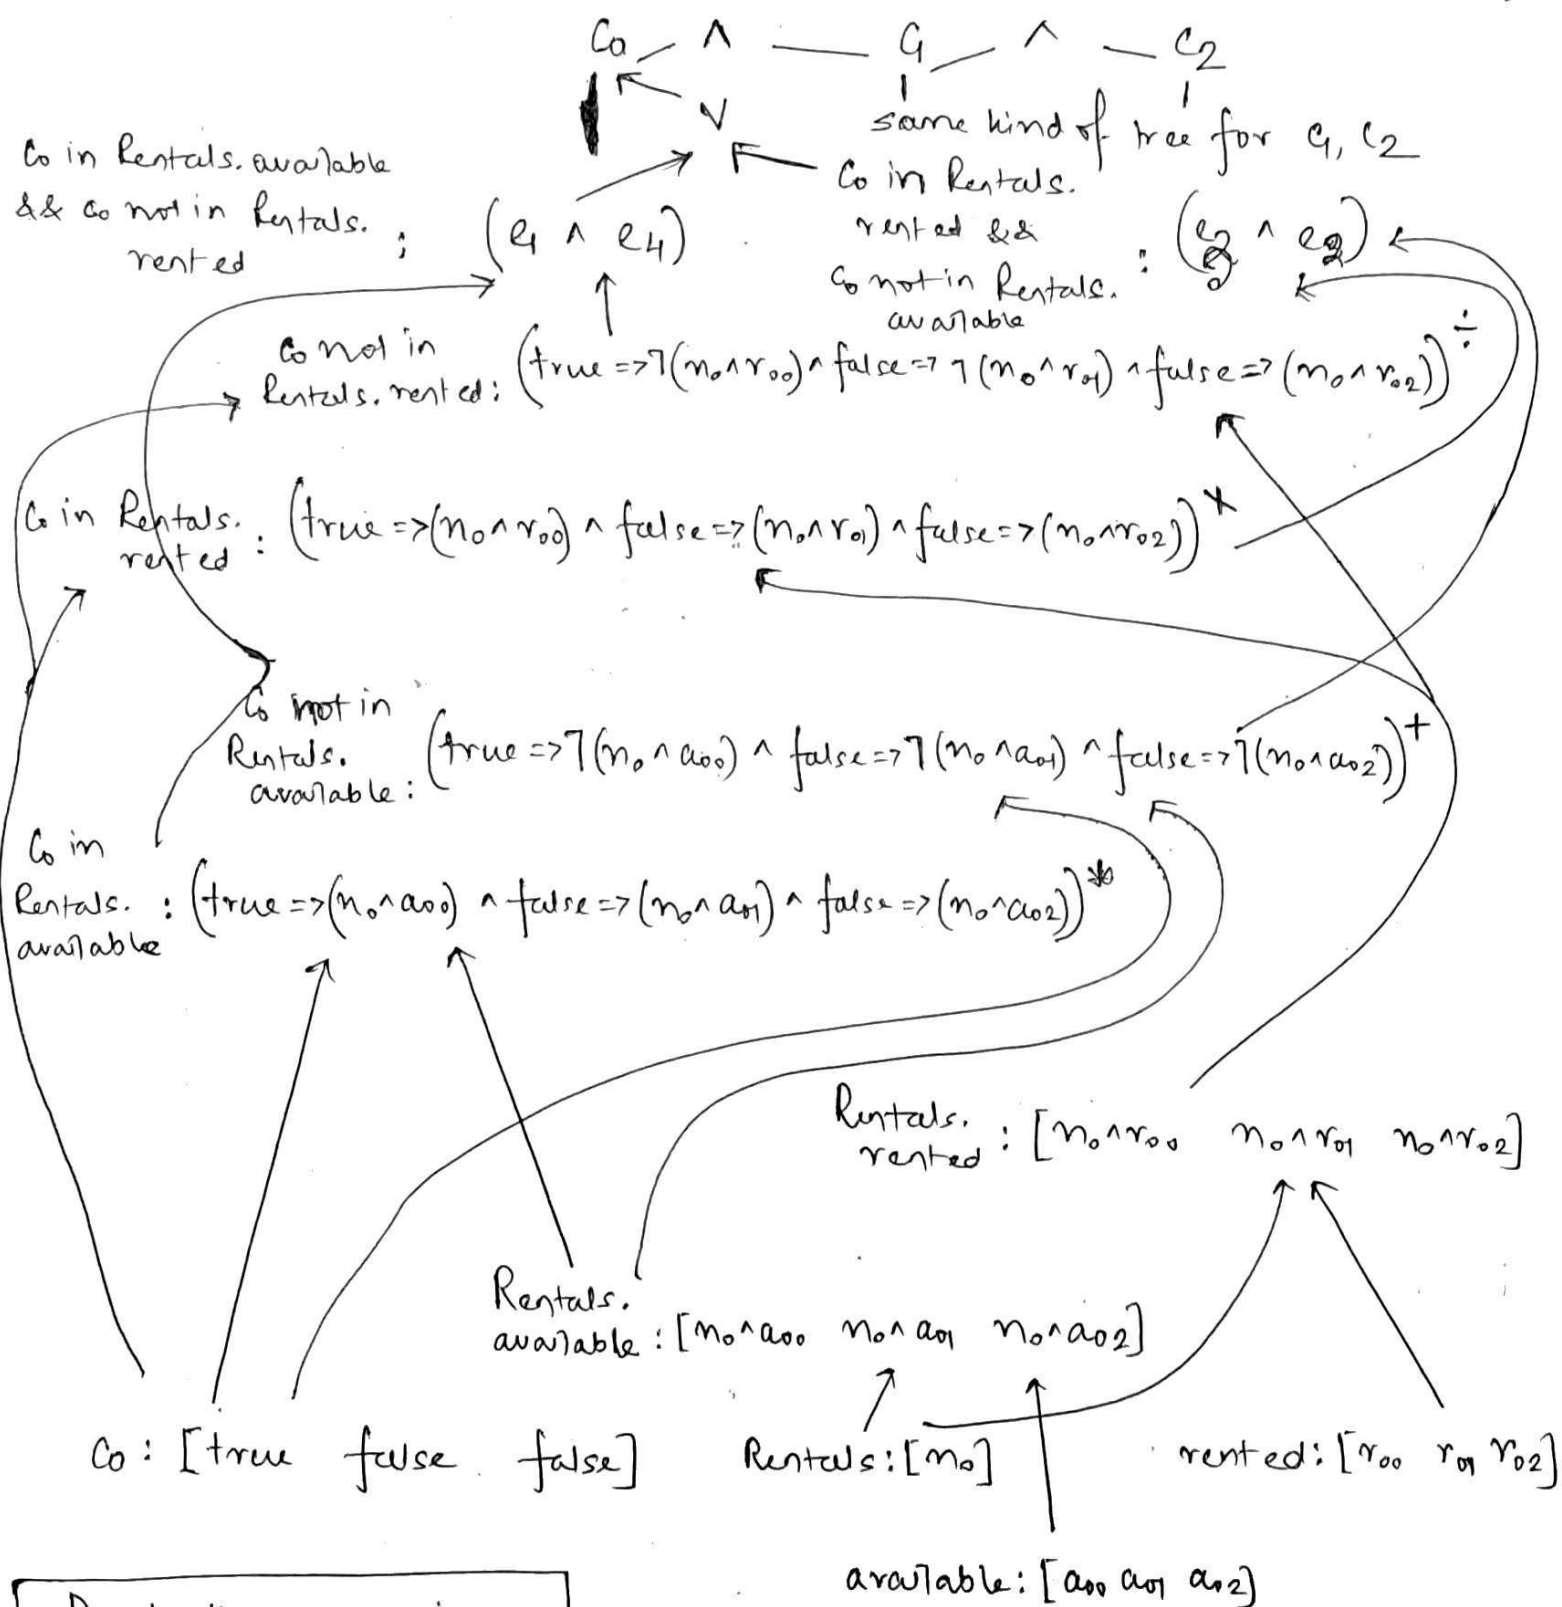 C0 ∧ C1 ∧ C2
∨
same kind of tree for C1, C2
C0 in Rentals. available
&& C0 not in Rentals.
rented ;
(e1 ∧ e4)
C0 in Rentals.
rented &&
C0 not in Rentals.
available
:
C0 not in
Rentals. rented :
(true =>¬(n0∧r00) ∧ false => ¬(n0∧r01) ∧ false => (n0∧r02))÷
C0 in Rentals.
rented :
(true =>(n0∧r00) ∧ false => (n0∧r01) ∧ false => (n0∧r02))*
C0 not in
Rentals.
available :
(true =>¬(n0∧a00) ∧ false =>¬(n0∧a01) ∧ false =>¬(n0∧a02))+
C0 in
Rentals. :
available
(true =>(n0∧a00) ∧ false =>(n0∧a01) ∧ false =>(n0∧a02))*
Rentals.
rented : [n0∧r00 n0∧r01 n0∧r02]
Rentals.
available : [n0∧a00 n0∧a01 n0∧a02]
C0 : [true false false]
Rentals : [n0]
rented : [r00 r01 r02]
available : [a00 a01 a02]